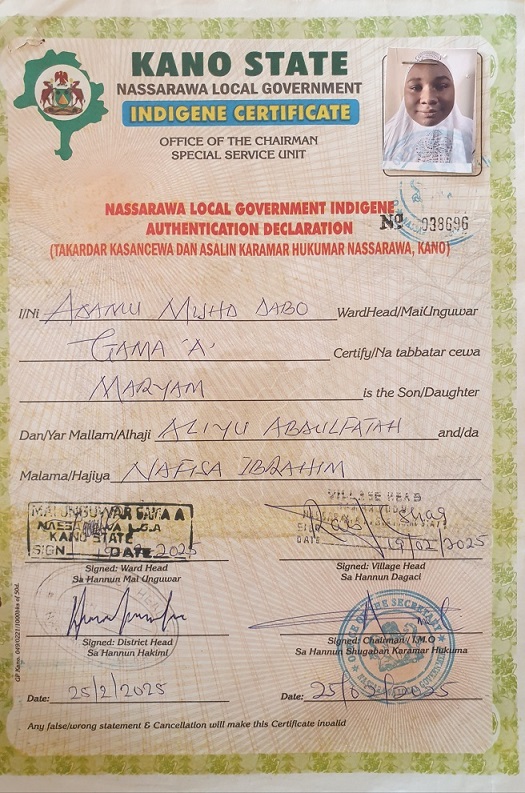 KANO STATE
NASSARAWA LOCAL GOVERNMENT
INDIGENE CERTIFICATE
OFFICE OF THE CHAIRMAN
SPECIAL SERVICE UNIT
NASSARAWA LOCAL GOVERNMENT INDIGENE
AUTHENTICATION DECLARATION
No 038696
(TAKARDAR KASANCEWA DAN ASALIN KARAMAR HUKUMAR NASSARAWA, KANO)
I/Ni ADAMU MUHD DABO WardHead/MaiUnguwar
GAMA 'A' Certify/Na tabbatar cewa
MARYAM is the Son/Daughter
Dan/Yar Mallam/Alhaji ALIYU ABDULFATAH and/da
Malama/Hajiya NAFISA IBRAHIM
MAI UNGUWAR GAMA A
NASSARAWA L.G.A
KANO STATE
SIGN DATE 2025
VILLAGE HEAD
SIGN
DATE 19/02/2025
Signed: Ward Head
Sa Hannun Mai Unguwar
Signed: Village Head
Sa Hannun Dagaci
Signed: District Head
Sa Hannun Hakimi
Signed: Chairman / I.M.O
Sa Hannun Shugaban Karamar Hukuma
Date: 25/2/2025
Date: 25/02/2025
Any false/wrong statement & Cancellation will make this Certificate invalid